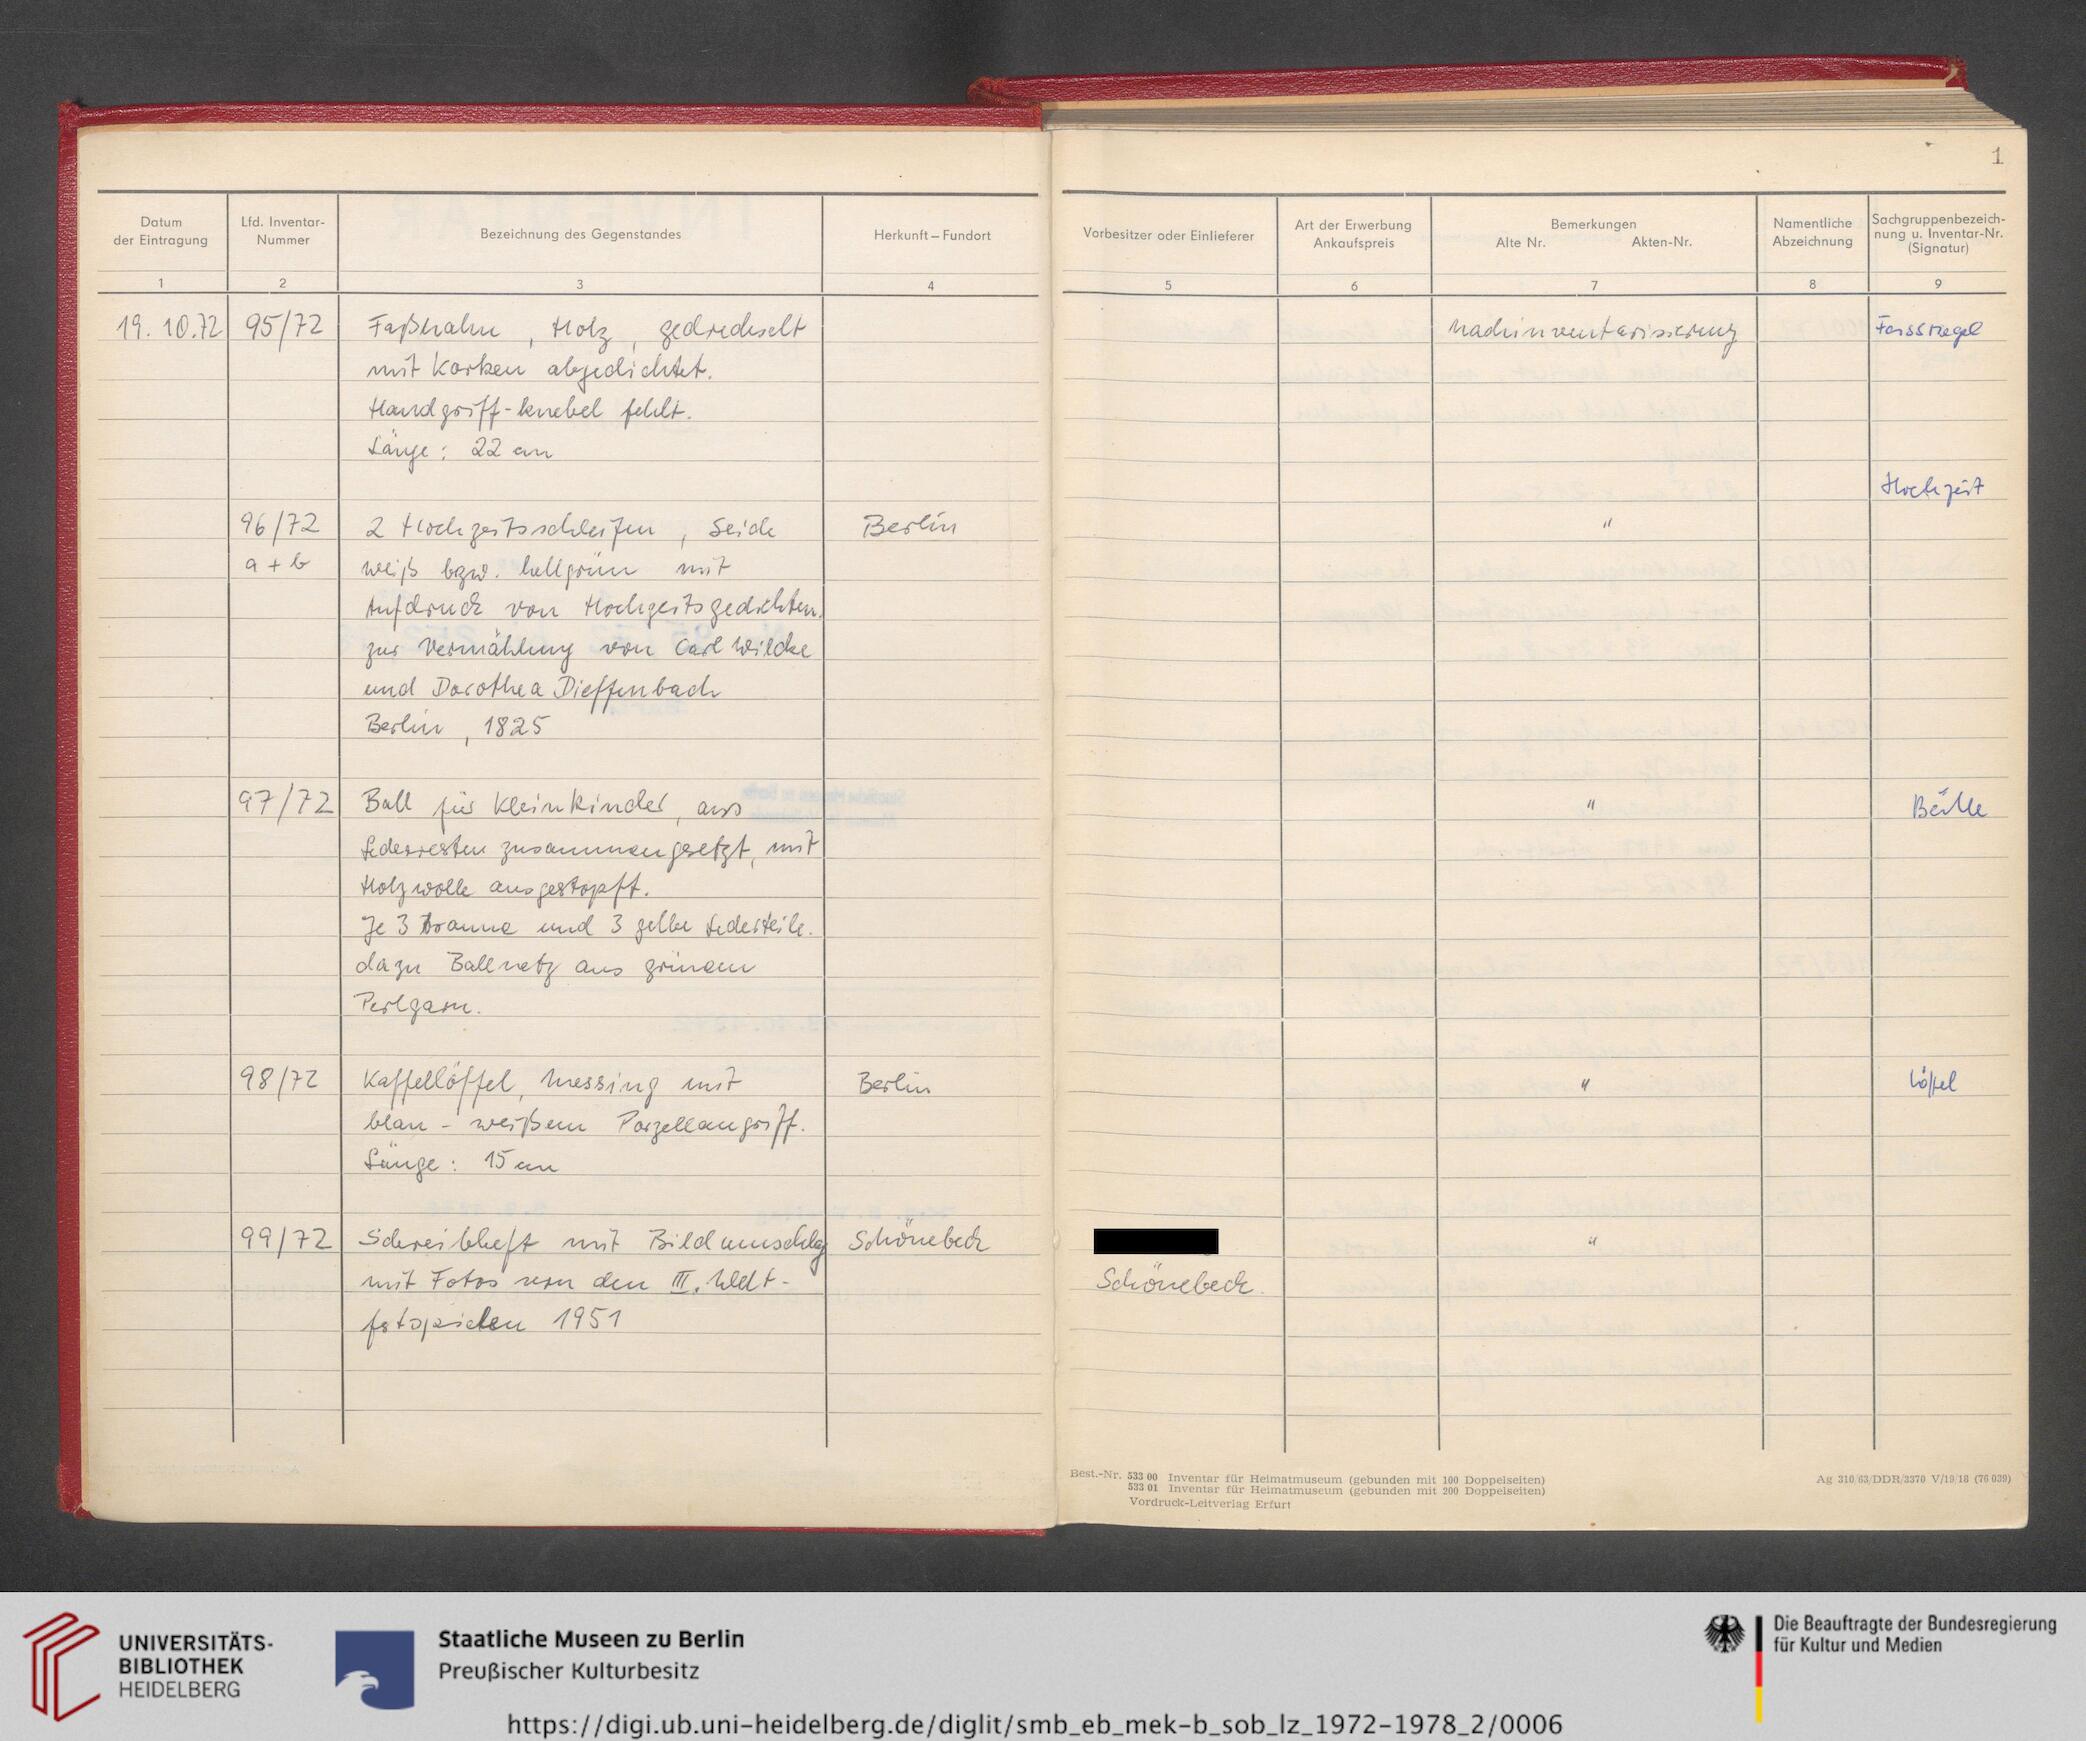 1
Datum
der Eintragung
Lfd. Inventar-
Nummer
Bezeichnung des Gegenstandes
Herkunft – Fundort
Vorbesitzer oder Einlieferer
Art der Erwerbung
Ankaufspreis
Bemerkungen
Alte Nr. Akten-Nr.
Namentliche
Abzeichnung
Sachgruppenbezeich-
nung u. Inventar-Nr.
(Signatur)
1 2 3 4 5 6 7 8 9
19.10.72 95/72 Faßhahn, Holz, gedrechselt Nachinventarisierung
mit Korken abgedichtet.
Handgriff-knebel fehlt.
Länge: 22 cm
Hochzeit
96/72 2 Hochzeitsschleifen, Seide Berlin "
a + b weiß bzw. hellgrün mit
Aufdruck von Hochzeitsgedichten.
zur Vermählung von Carl Wilcke
und Dorothea Dieffenbach
Berlin, 1825
97/72 Ball für Kleinkinder, aus " Bälle
Lederresten zusammengesetzt, mit
Holzwolle ausgestopft.
Je 3 braune und 3 gelbe Lederteile.
dazu Ballnetz aus grünem
Perlgarn.
98/72 Kaffellöffel, Messing mit Berlin " Löffel
blau - weißem Porzellangriff.
Länge: 15 cm
99/72 Schreibheft mit Bildumschlag Schönebeck "
mit Fotos von den III. Welt- Schönebeck
festspielen 1951
Best.-Nr. 533 00 Inventar für Heimatmuseum (gebunden mit 100 Doppelseiten)
533 01 Inventar für Heimatmuseum (gebunden mit 200 Doppelseiten)
Vordruck-Leitverlag Erfurt
Ag 310/63/DDR/3370 V/19/18 (76 039)
UNIVERSITÄTS-
BIBLIOTHEK
HEIDELBERG
Staatliche Museen zu Berlin
Preußischer Kulturbesitz
Die Beauftragte der Bundesregierung
für Kultur und Medien
https://digi.ub.uni-heidelberg.de/diglit/smb_eb_mek-b_sob_lz_1972-1978_2/0006